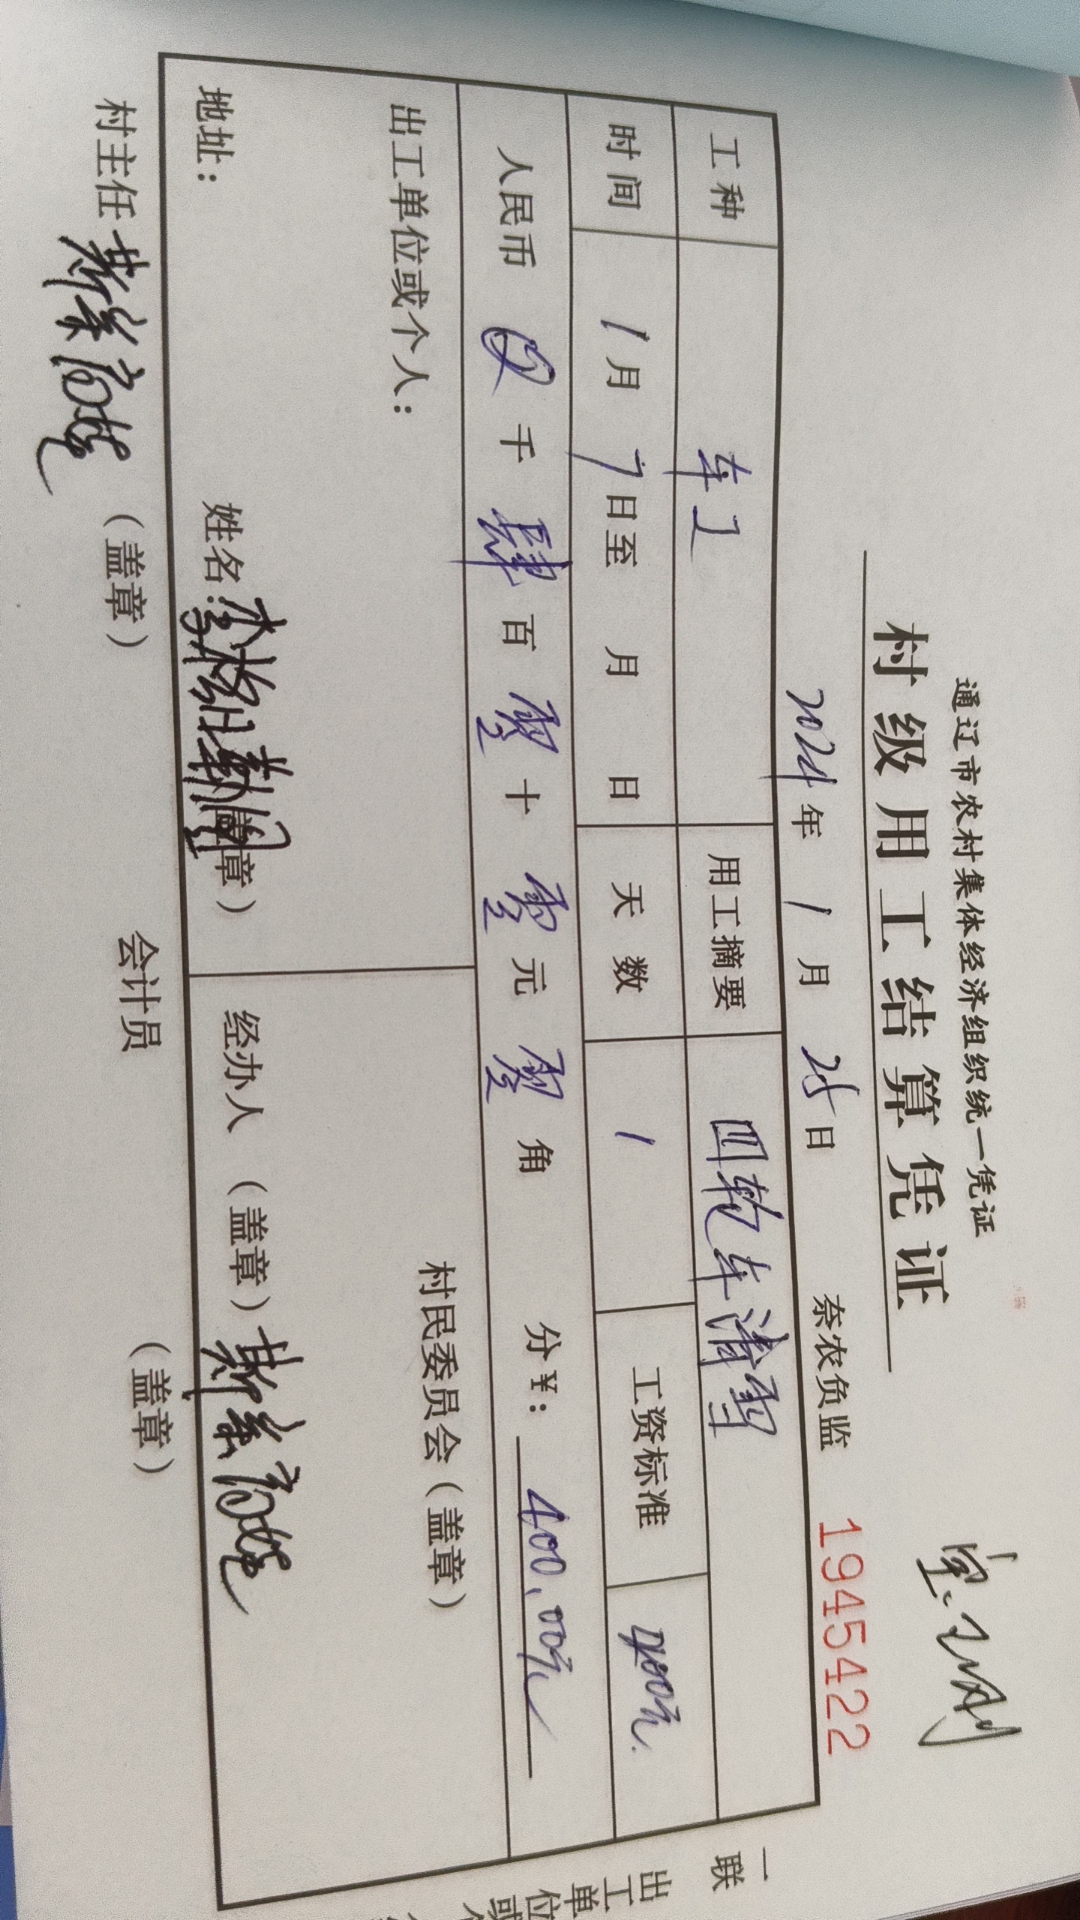 通辽市农村集体经济组织统一凭证
村级用工结算凭证
2024年1月25日 奈农负监 1945422
工种 车工 用工摘要 四轮车清雪
时间 1月7日至 月 日 天数 1 工资标准 400元.
人民币 千 肆百零十零元零角 分¥: 400.00元
出工单位或个人:
村民委员会(盖章)
地址: 姓名: 章) 经办人 (盖章)
村主任 (盖章) 会计员 (盖章)
一联
出工单位或